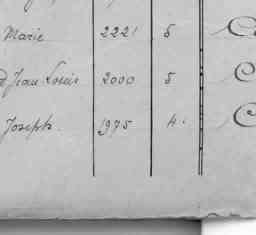 Marie 2221 5
Jean Louis 2000 5
Joseph. 1975 4.